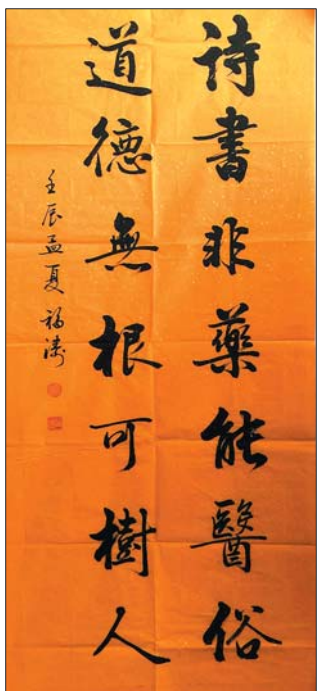 詩書非藥能醫俗
道德無根可樹人
壬辰孟夏 福濤